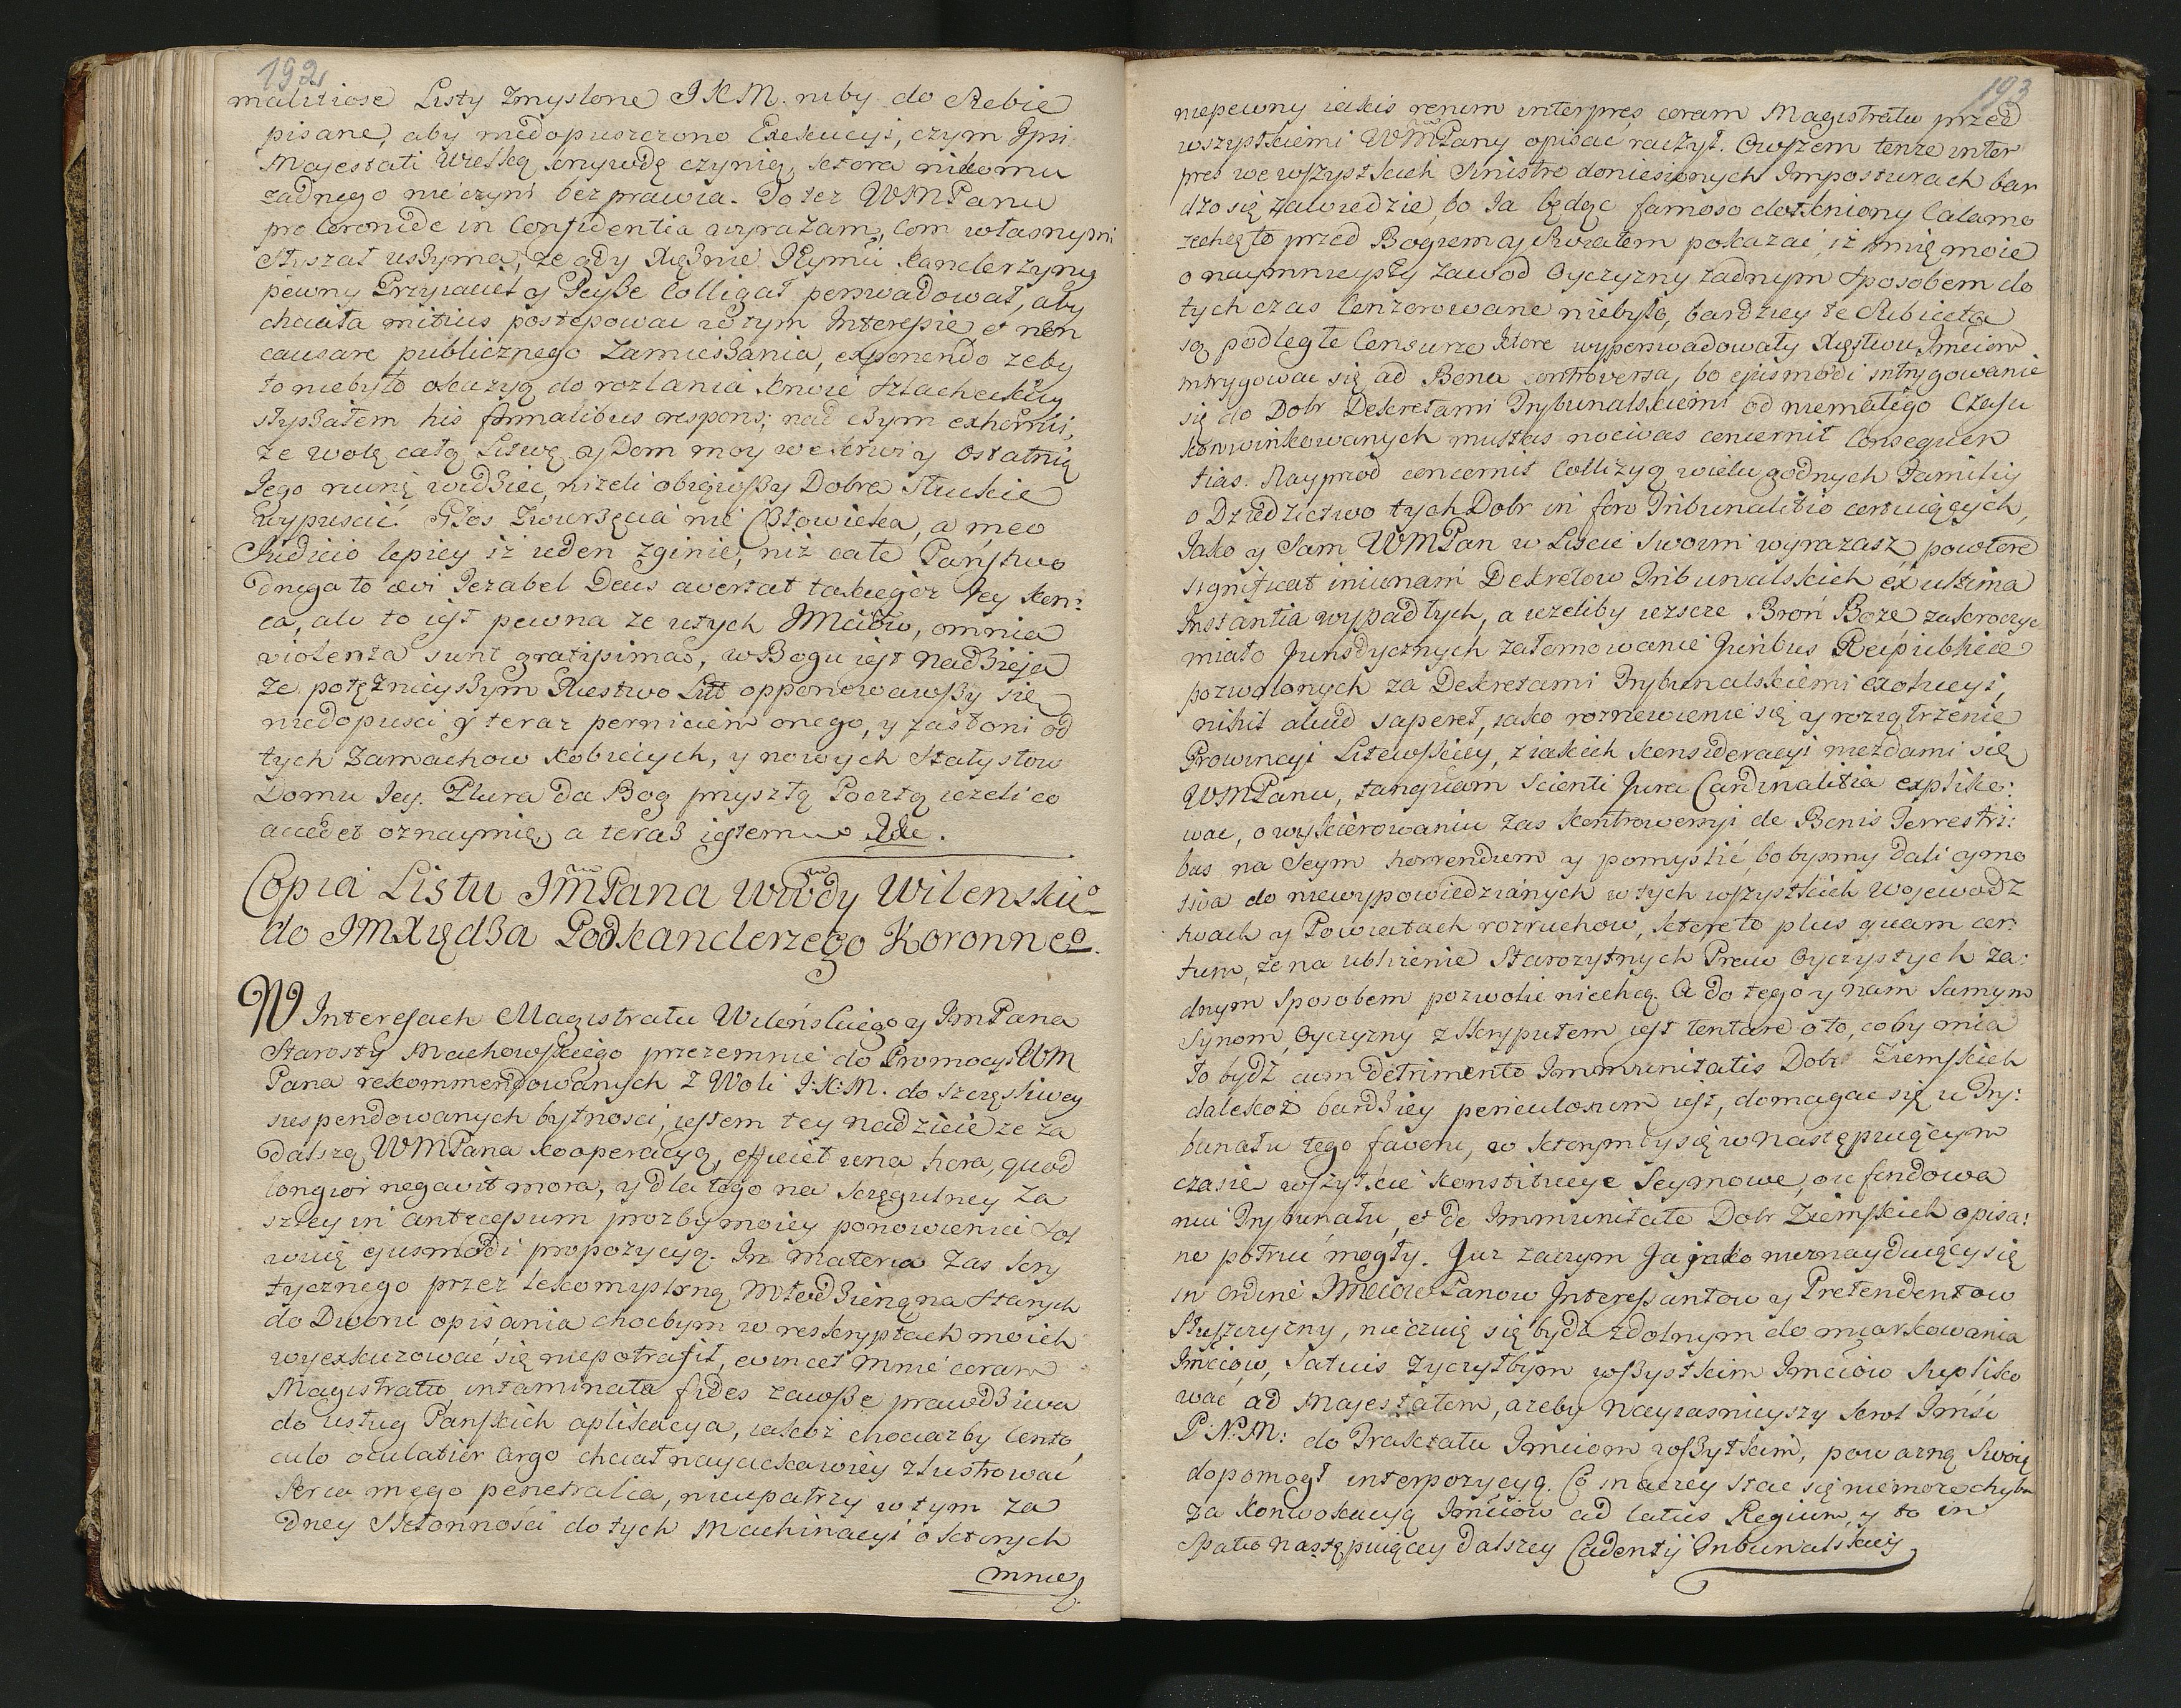 192
malitiose Listy zmyslone J K M. niby do Siebie
pisane, aby niedopuszczono Exekucyi, czym Ipsi
Majestati wielką krzywdę czynią, ktora nikomu
zadnego nieczyni bezprawia. Do tez WMPanu
pro Coronide in Confidentia wyrażam, com własnymi
słyszał uszyma, że gdy Xiężnie JKymci Kanclerzyny
pewny Przyiaciel y Ieysze Colligat perswadował, aby
chciała mitius postępowac w tym Interessie et non
causare publicznego zamieszania, exponendo zeby
to niebyło okazyą do rozlania krwie Szlacheckiey
słyszałem his formalibus respons; nad czym exhorrui,
że wolę całą Litwę y Dom moy we krwi y ostatnią
Iego ruinę widziec, nizeli obiąwszy Dobra Słuckie
wypuscic. Głos zwierzęcia nie Człowieka, a meo
Iudicio lepiey iz ieden zginie, niż całe Państwo
druga to ævi Iezabel Deus avertat takiegoz Iey kon:
ca, ale to iest pewna ze u tych JMciów, omnia
violenta sunt gratissima, w Bogu iest nadzieja
że potężnieyszym Xiestwo Litt opponowawszy się
niedopusci y teraz perniciem onego, y zasłoni od
tych zamachow Kobiecych, y nowych Statystow
Domu Iey. Plura da Bog przyszłą Pocztą iezeli co
accedet oznaymię, a teraz iestem etc.
Copia Listu JmPana Wdy Wilenskieo
do JMXiędza Podkanclerzego Koronneo.
W Interesach Magistratu Wileńskiego y JmPana
Starosty Machowskiego przezemnie do Promocyi WM
Pana rekommendowanych z Woli J:K:M. do szczęsliwey
suspendowanych bytnosci, iestem tey nadzieie ze za
dalszą WMPana kooperacyą, efficiet una hora, quod
longior negavit mora, y dla tego na szczegulney za
szłey in antecessum prozby moiey ponowieniu
ejusmodi propozycyą. In materia zas kry
tycznego przez lekomyslną Młodzieną na starych
do Dworu opisania chocbym w reskryptach moich
wyexkuzowac się niepotrafił, evincet mnie coram
Magistratu intaminata fides zawsze prawdziwa
do usług Pańskich aplikacya, iakoż chociazby cento
culo oculatior Argo chciał nayciekawiey zlustrowac
serca mego penetralia, nieupatrzy w tym za
dney skłonności do tych Machinacyi o ktorych
mnie
193
niepewny iakis rerum interpres coram Magistratu przed
wszystkiemi WMPany opisac raczył. Owszem tenze inter
pres we wszystkich sinistro doniesionych Imposturach bar
dzo się zawiedzie, bo Ia będąc famoso dotkniony Calamo
zechcę to przed Bogiem y Swiatem pokazac, iż imię moie
o naymnieyszy zawod Oyczyzny zadnym sposobem do
tych czas Cenzorowane niebyło, bardziey te Subiecta
są podległe Censurze ktore wyperswadowały Xięstwu Jmciom
intrygowac się ad Bona controversa, bo ejusmodi intrygowanie
się do Dobr Dekretami Trybunalskiemi od niemałego Czasu
konwinkowanych multas nocivas concernit Consequen
tias. Nayprzod concernit Collizyą wielu godnych Familiy
o Dziedzictwo tych Dobr in foro Tribunalitio certuiących,
Iako y Sam WMPan w Liscie swoim wyrazasz, powtore
significat iniuriam Dekretow Tribunalskich ex ultima
Instantia wypadłych, a iezeliby ieszcze Broń Boże zakroczyc
miało Jurisdycznych zatamowanie Juribus Reipublicæ
pozwolonych za Dekretami Trybunalskiemi exekucyi,
nihil aliud saperet, iako roznievienie się y rozątrzenie
Prowincyi Litewskiey, z iakich konsideracyi niezdami się
WMPanu, tanquam Scienti Jura Cardinalitia expliko:
wac, o wyścierowaniu zas kontrowersyi de Bonis Terrestri:
bus na Seym horrendum y pomyslić, bo bysmy dali ogmo
tiva do niewypowiedzianych w tych wszystkich Wojewodz
twach y Powiatach rozruchow, ktore to plus quam cer:
tum, że na ubliżenie Starozytnych Praw Oyczystych za:
dnym Sposobem pozwolic niechcą. A do tego y nam samym
Synom Oyczyzny z skrypułem iest tentare o to, coby mia
ło bydź cum detrimento Immunitatis Dobr Ziemskich
dalekoż bardziey periculosum iest, domagac się u Try:
bunału tego favoru, w ktorymby się w następuiącym
czasie wszytkie konstitucye Seymowe, o ufundowa
niu Trybunału, et de Immunitate Dobr Ziemskich opisa:
ne potruc mogły. Juz zaczym Ja jako nieznayduiący się
in ordine JMciow Panow Interessantow y Pretendentow
Słuszczyzny, nieczuię się bydz zdolnym do miarkowania
Jmciow, satius zyczyłbym wszystkim Jmciow supliko
wać ad Majestatem, azeby Nayiasnieyszy Krol Jmść
P: N: M: do Traktatu Jmciom wszytkim, powazną swoią
dopomogł interpozycyą. Co inaczey stac się niemoze chyba
za konwokacyą Jmciow ad latus Regium, y to in
spatio następuiącey dalszey Cadencyi Tribunalskiey